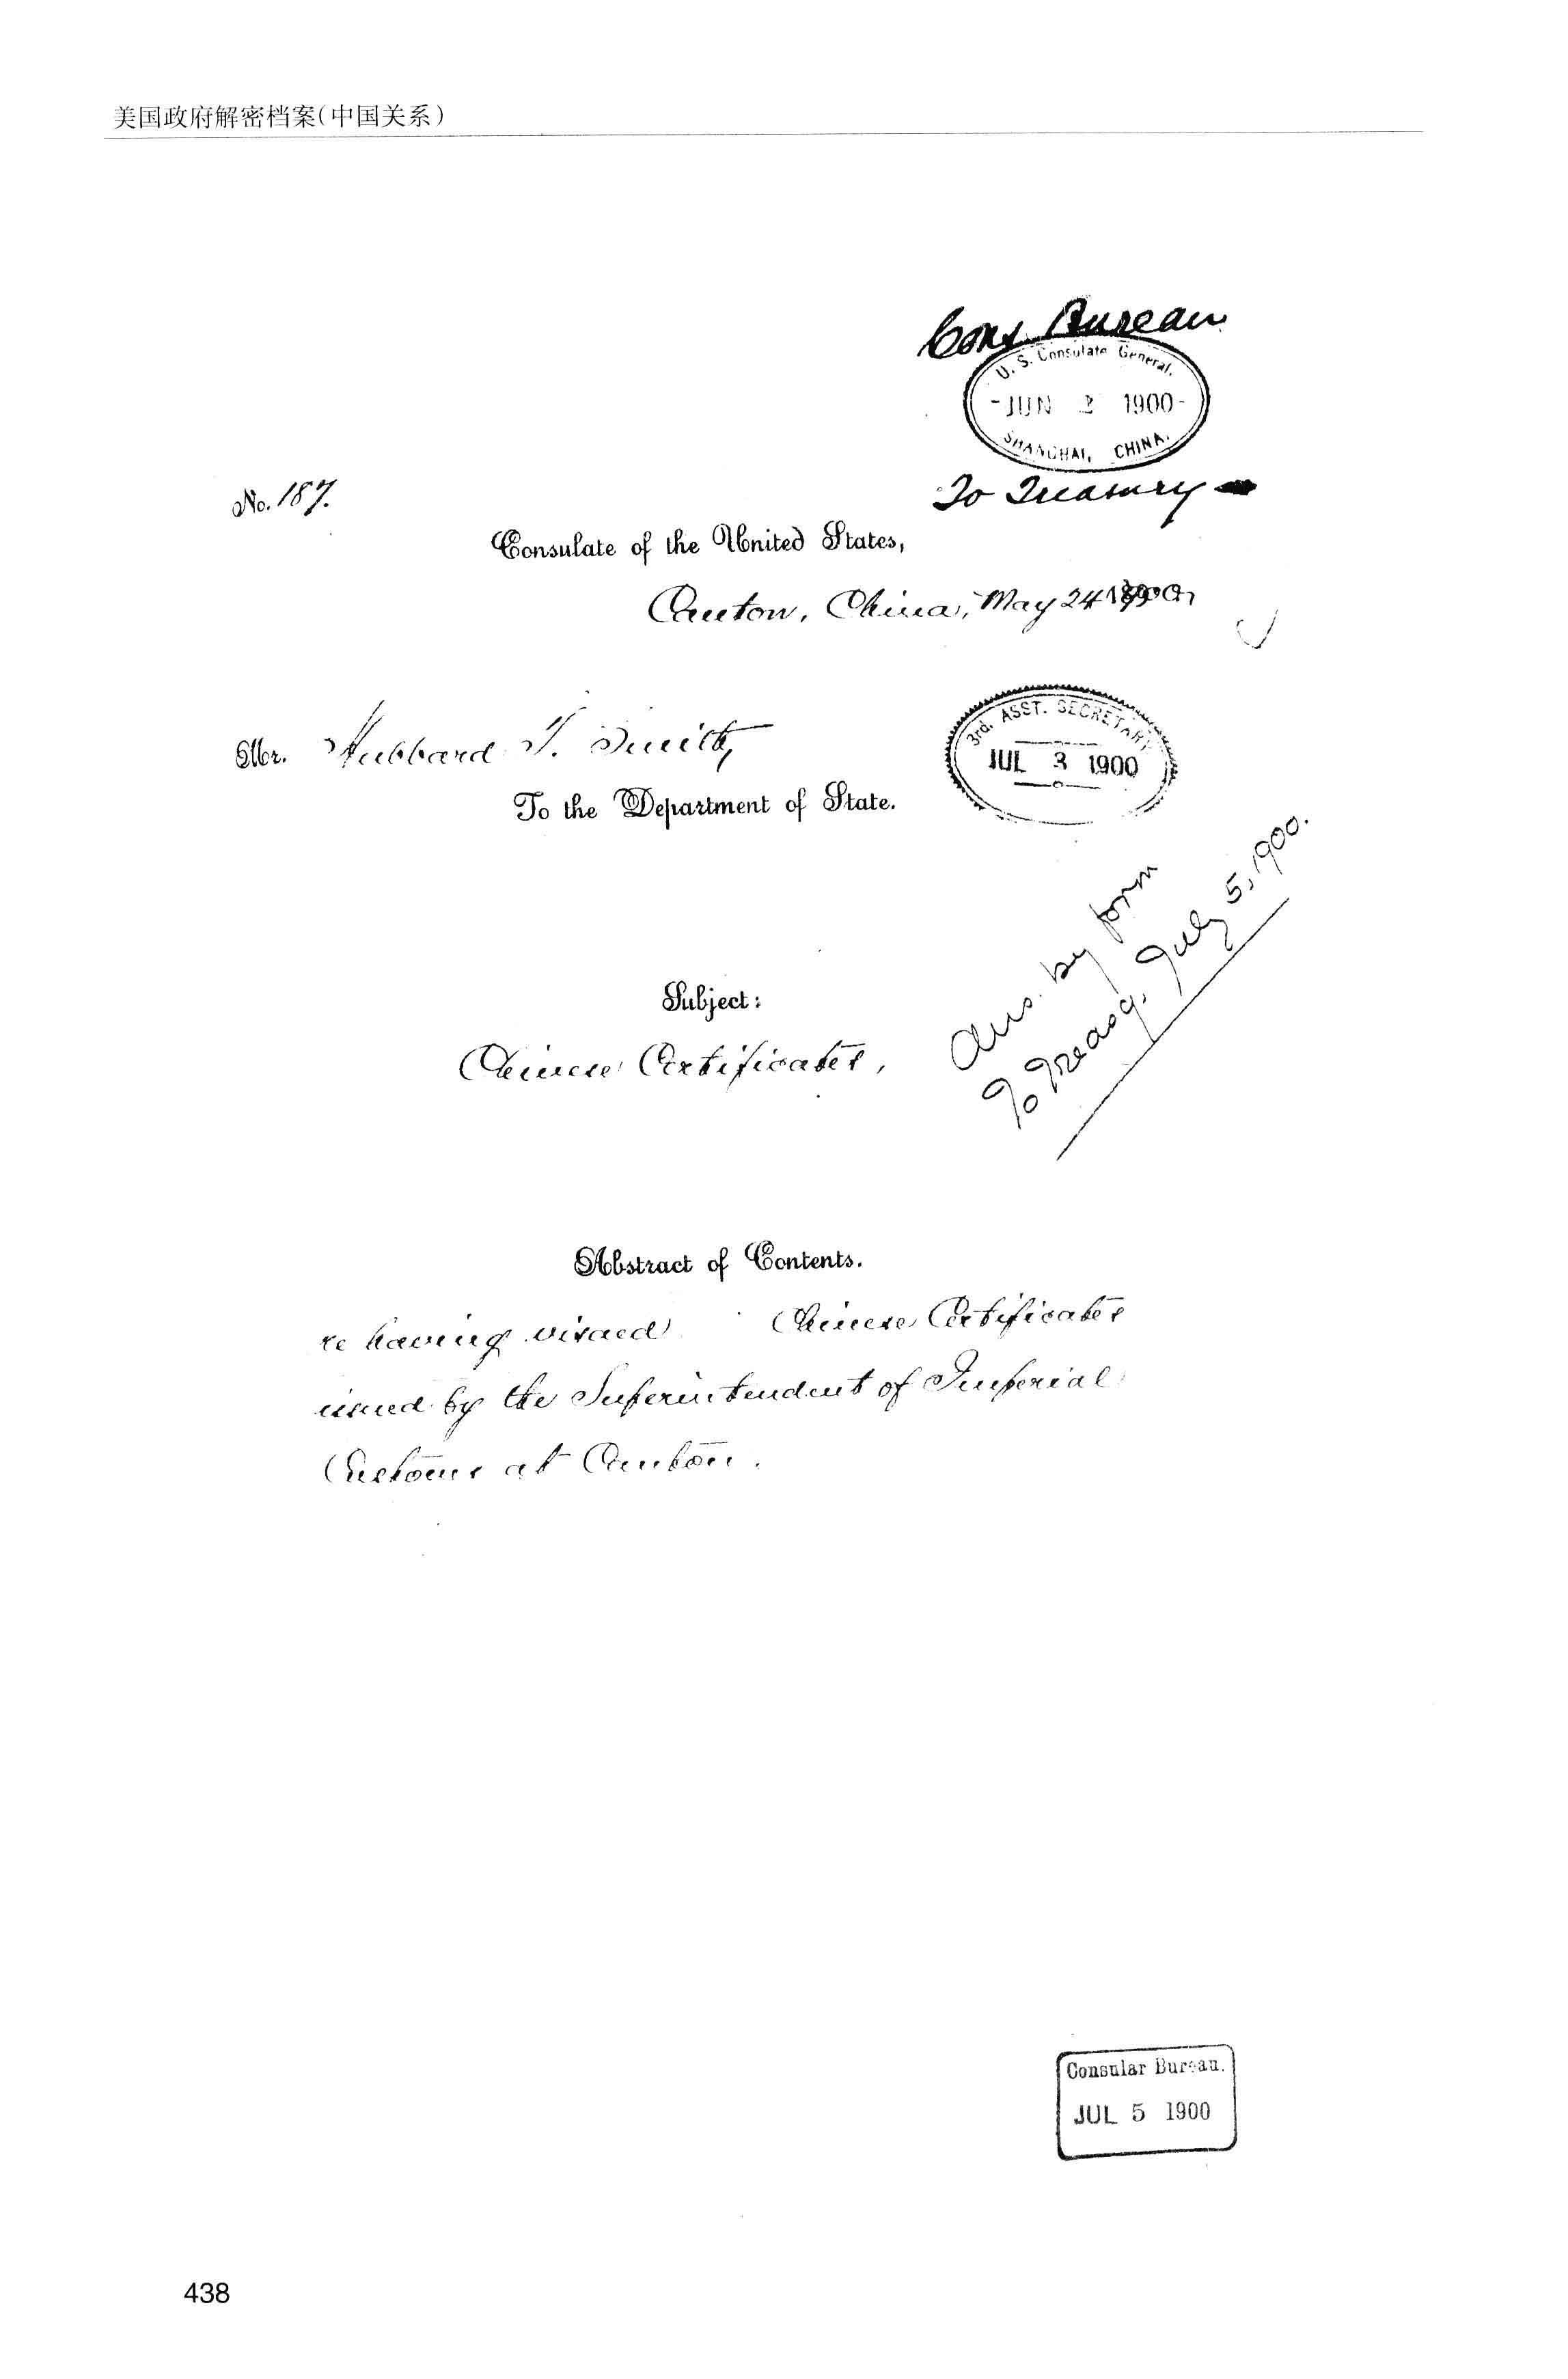 美国政府解密档案(中国关系)
Cons. Bureau
U. S. Consulate General.
JUN 2 1900
SHANGHAI, CHINA.
To Treasury
No. 187.
Consulate of the United States,
Canton, China, May 24 1900
Mr. Hubbard T. Smith,
To the Department of State.
3rd. ASST. SECRETARY
JUL 3 1900
Ans. by form
To Treasy. July 5, 1900.
Subject:
Chinese Certificates,
Abstract of Contents.
re having visaed Chinese Certificates
issued by the Superintendent of Imperial
Customs at Canton.
Consular Bureau.
JUL 5 1900
438